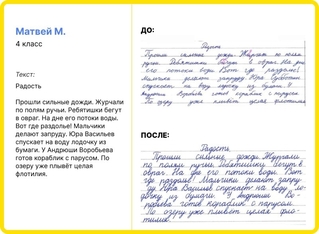 Матвей М.
4 класс
Текст:
Радость
Прошли сильные дожди. Журчали
по полям ручьи. Ребятишки бегут
в овраг. На дне его потоки воды.
Вот где раздолье! Мальчики
делают запруду. Юра Васильев
спускает на воду лодочку из
бумаги. У Андрюши Воробьева
готов кораблик с парусом. По
озеру уже плывёт целая
флотилия.
ДО:
Радость
Прошли сильные дожди. Журчат по полям
ручьи. Ребятишки бегут в овраг. На дне
его потоки воды. Вот где раздолье!
делают запруду. Юра
спускает на воду лодочку из бумаги. У
готов кораблик с парусом
По озеру уже плывёт целая флотилия
ПОСЛЕ:
Радость
Прошли сильные дожди. Журчали
по полям ручьи. Ребятишки бегут в
овраг. На дне его потоки воды. Вот
где раздолье! Мальчики делают запру-
ду. Юра Васильев спускает на воду ло-
дочку из бумаги. У Андрюши Во-
робьёва готов кораблик с парусом.
По озеру уже плывёт целая фло-
тилия.